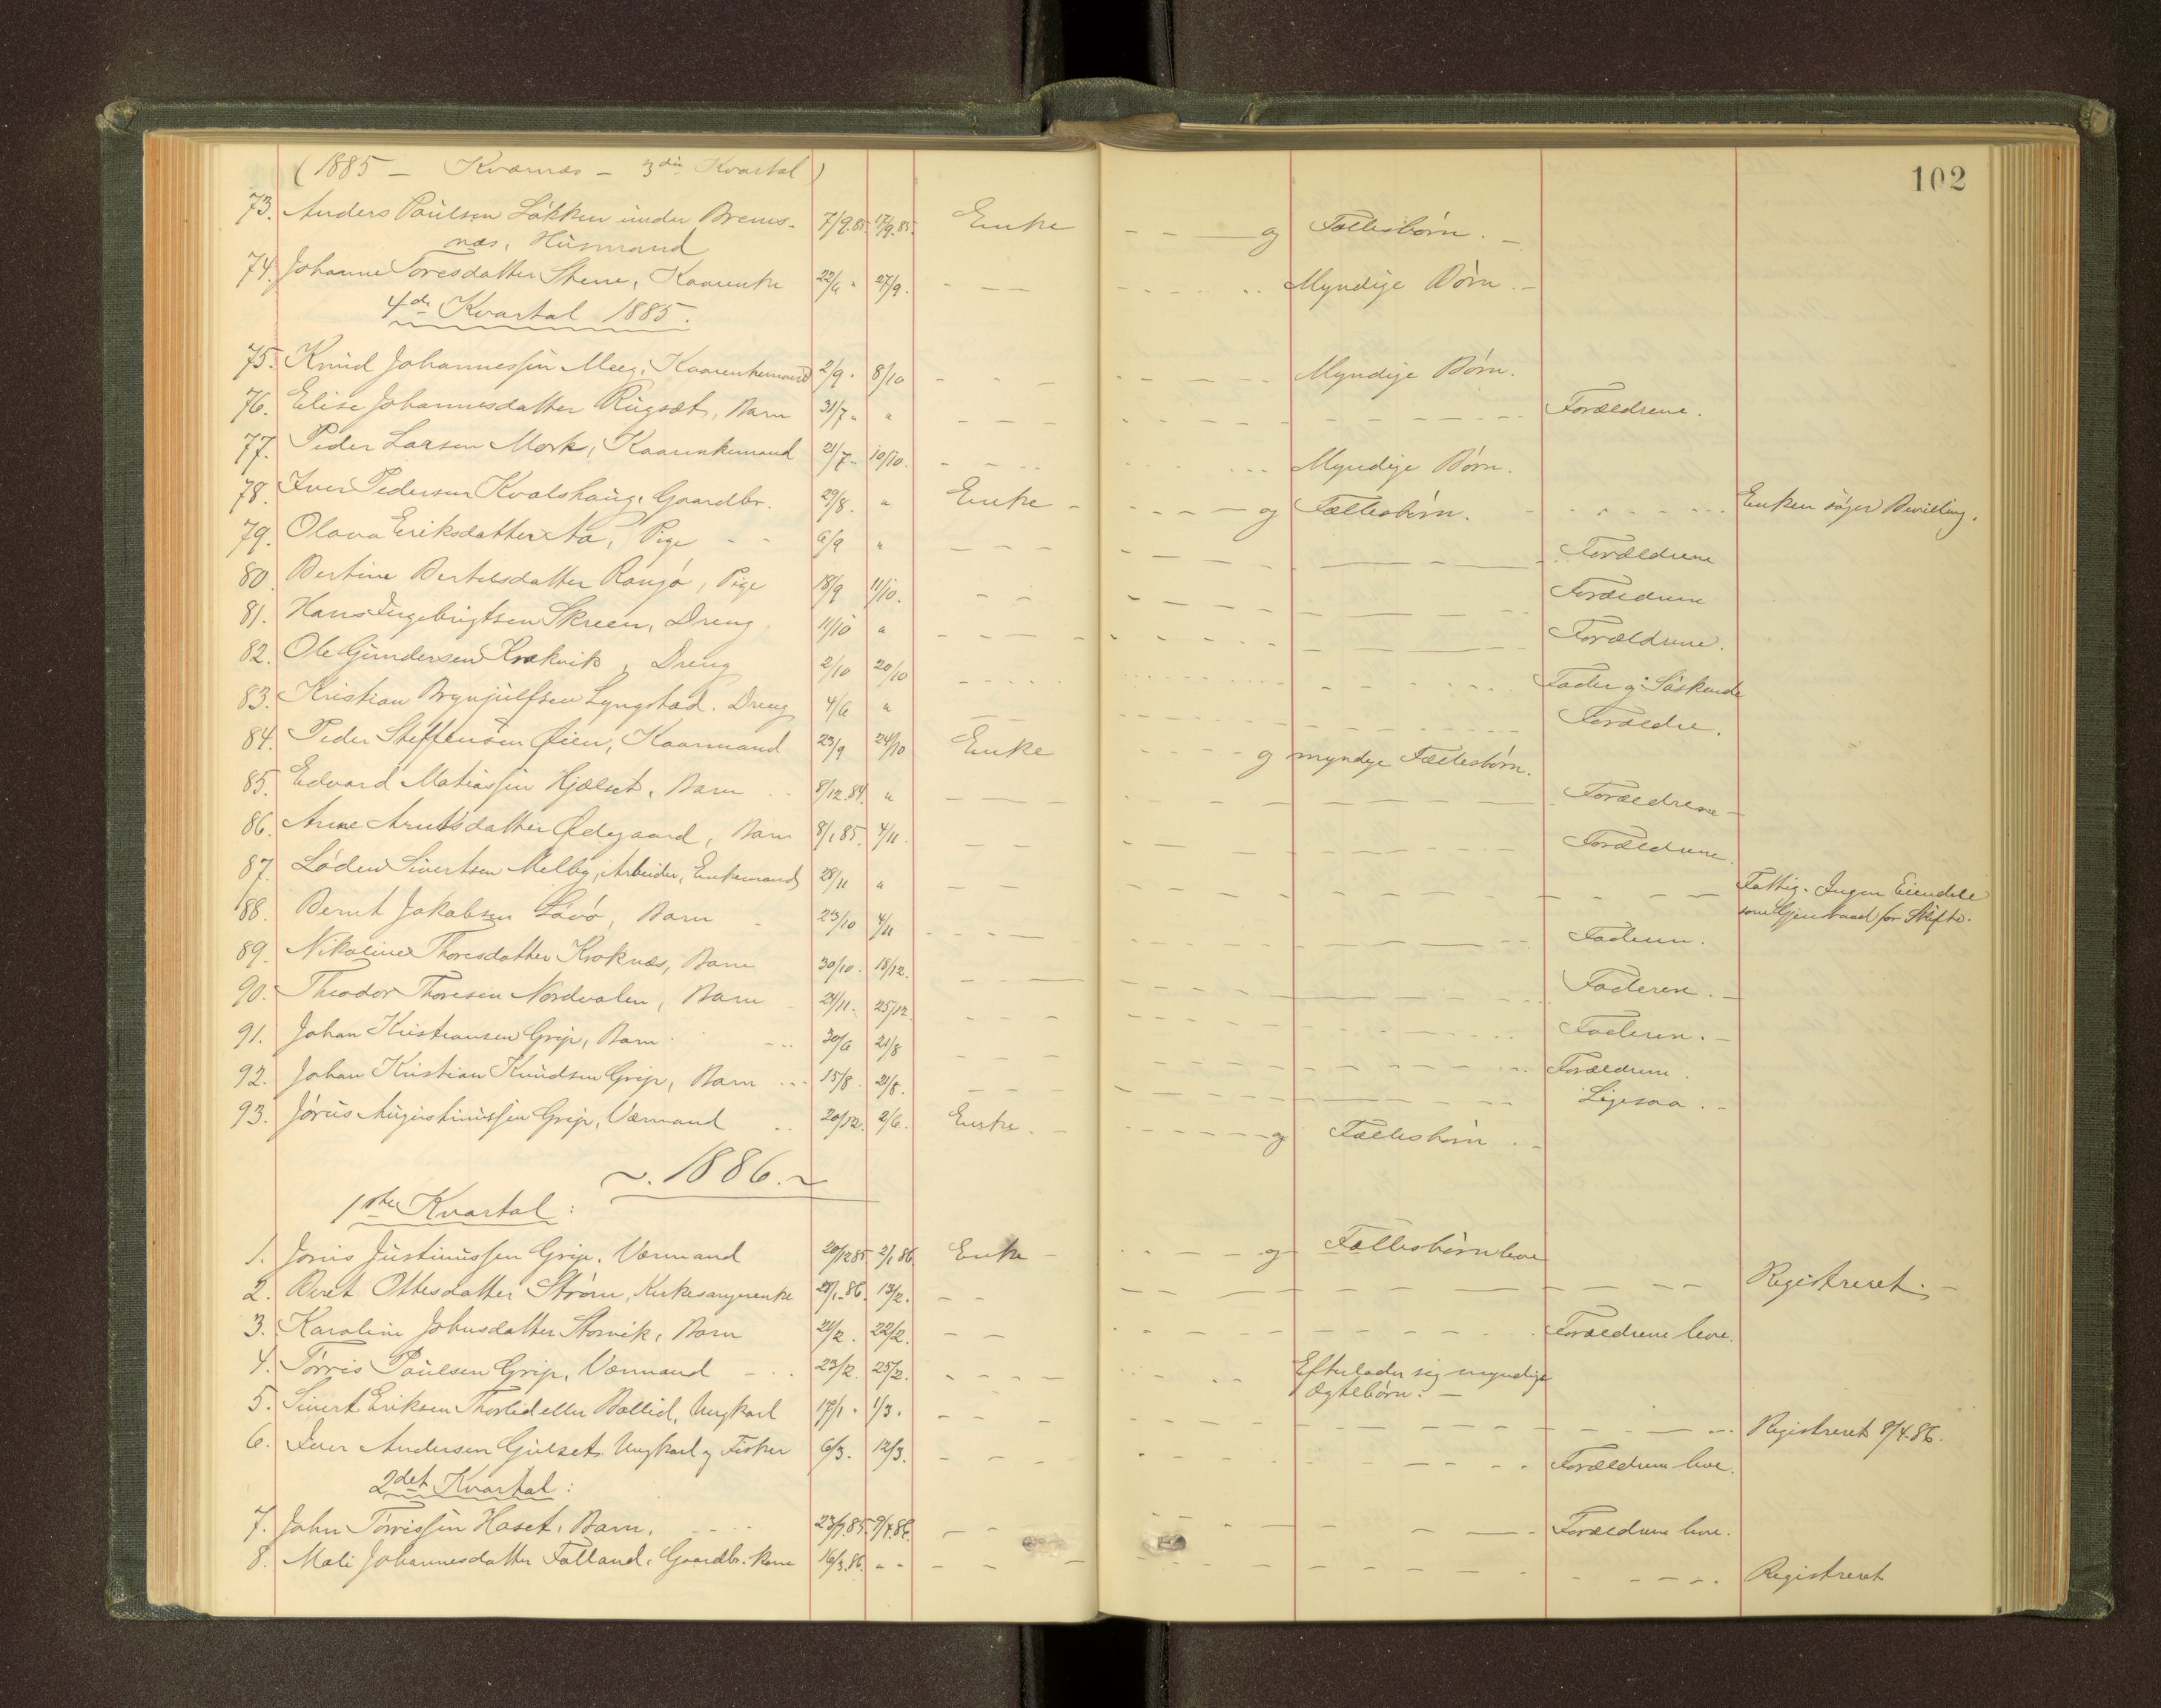 102
(1885 – Kværnæs – 3die Kvartal)
73. Anders Paulsen Løkken under Brems- 7/9.85. 17/9.85. Enke og Fællesbørn.
næs, Husmand
74. Johanne Toresdatter Stene, Kaarenke 22/6 " 27/9. Myndige Børn.
4de Kvartal 1885.
75. Knud Johannessen Meeg, Kaarenkemand 2/9. 8/10 Myndige Børn.
76. Elise Johannesdatter Rugsæt, Barn 31/7 " " Forældrene.
77. Peder Larsen Mork, Kaarenkemand 21/7 10/10. Myndige Børn.
78. Iver Pedersen Kvalshaug, Gaardbr. 29/8. " Enke og Fællesbørn. Enken søger Bevilling.
79. Olava Eriksdatter Aa, Pige 6/9 " Forældrene
80. Bertine Bertelsdatter Rangø, Pige 18/9 11/10. Forældrene
81. Hans Ingebrigtsen Skreen, Dreng 11/10 " Forældrene.
82. Ole Gundersen Krækvik, Dreng 2/10 20/10 Fader og Søskende
83. Kristian Brynjulfsen Lyngstad. Dreng 4/6 " Forældre.
84. Peder Steffensen Øien, Kaarmand 23/9 24/10 Enke og myndige Fællesbørn.
85. Edvard Matiassen Hjælset, Barn 8/12.84. " Forældrene
86. Anne Arntsdatter Ødegaard, Barn 8/1 85. 4/11. Forældrene.
87. Løden Sivertsen Melby, Arbeider, Enkemand 28/11 " Fattig. Ingen Eiendele
som Gjenstand for Skifte.
88. Bernt Jakobsen Løvø, Barn 23/10 4/11 Faderen.
89. Nikoline Thoresdatter Kroknæs, Barn 30/10. 18/12. Faderen.
90. Theodor Thoresen Nordvalen, Barn 24/11. 25/12. Faderen.
91. Johan Kristiansen Grip, Barn 30/6 21/8 Forældrene.
92. Johan Kristian Knudsen Grip, Barn 15/8. 21/8. Ligesaa.
93. Jørus Augustinussen Grip, Værmand 20/12. 2/6. Enke. og Fællesbørn.
1886.
1ste Kvartal:
1. Jørus Justinussen Grip. Værmand 20/12 85. 2/1 86. Enke og Fællesbørn leve
2. Beret Ottesdatter Strøm, Kirkesangerenke 28/1.86. 13/2. Registreret.
3. Karoline Johnsdatter Storvik, Barn 21/2. 22/2. Forældrene leve.
4. Tørris Paulsen Grip, Værmand 23/2. 25/2. Efterlader sig myndige
Ægtebørn.
5. Sivert Eriksen Thorlid eller Bollid, Ungkarl 17/1. 1/3. Registreret 8/4.86.
6. Iver Andersen Gulset, Ungkarl og Fisker 6/3. 12/3. Forældrene leve.
2det Kvartal:
7. John Tørrissen Haset, Barn. 23/9.85. 9/4.86. Forældrene leve.
8. Mali Johannesdatter Folland, Gaardbr. kone 16/3.86. Registreret